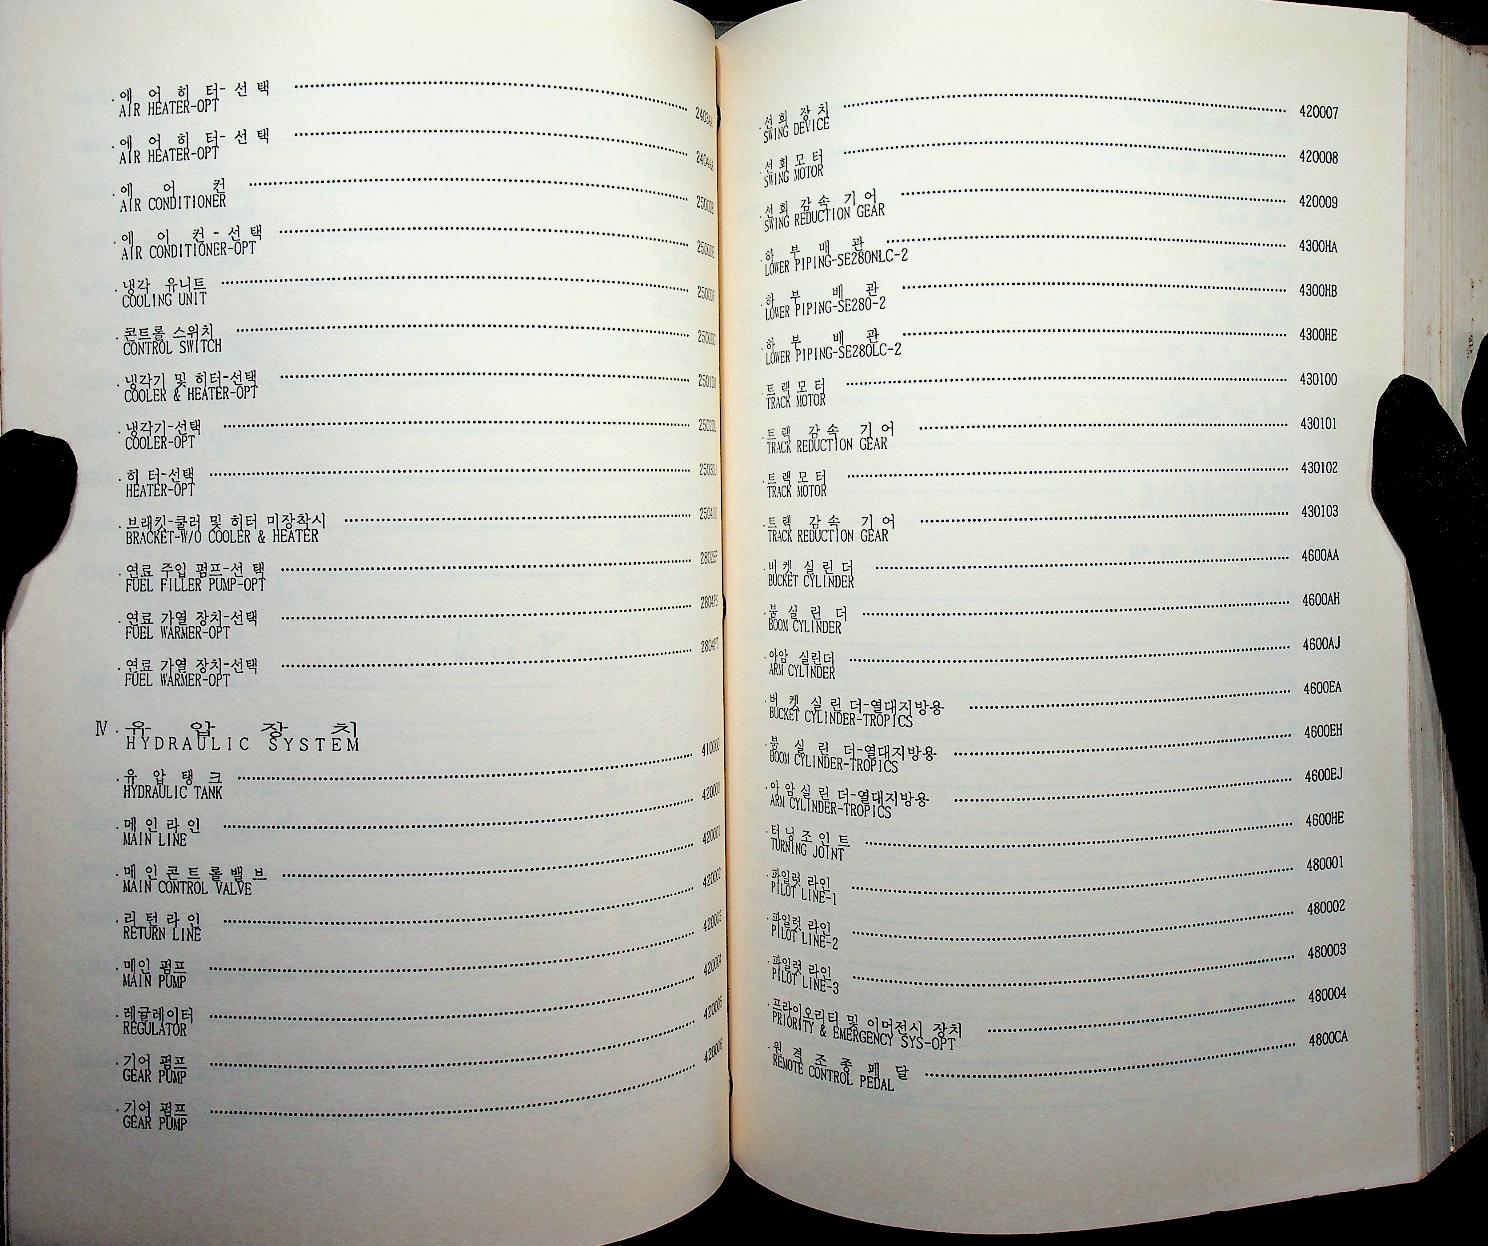 · 에 어 히 터- 선 택
AIR HEATER-OPT
· 에 어 히 터- 선 택
AIR HEATER-OPT
· 에 어 컨
AIR CONDITIONER
· 에 이 컨 - 선 택
AIR CONDITIONER-OPT
· 냉각 유니트
COOLING UNIT
· 콘트롤 스위치
CONTROL SWITCH
· 냉각기 및 히터-선택
COOLER & HEATER-OPT
· 냉각기-선택
COOLER-OPT
· 히 터-선택
HEATER-OPT
· 브래킷-쿨러 및 히터 미장착시
BRACKET-W/O COOLER & HEATER
· 연료 주입 펌프-선 택
FUEL FILLER PUMP-OPT
· 연료 가열 장치-선택
FUEL WARMER-OPT
· 연료 가열 장치-선택
FUEL WARMER-OPT
Ⅳ · 유 압 장 치
HYDRAULIC SYSTEM
· 유 압 탱 크 410000
HYDRAULIC TANK
· 메 인 라 인 420000
MAIN LINE
· 메 인 콘 트 롤 밸 브 420001
MAIN CONTROL VALVE
· 리 턴 라 인 420002
RETURN LINE
· 메인 펌프 420003
MAIN PUMP
· 레귤레이터 420004
REGULATOR
· 기어 펌프 420005
GEAR PUMP
· 기어 펌프 420006
GEAR PUMP
· 선 회 장 치 420007
SWING DEVICE
· 선 회 모 터 420008
SWING MOTOR
· 선 회 감 속 기 어 420009
SWING REDUCTION GEAR
· 하 부 배 관 4300HA
LOWER PIPING-SE280NLC-2
· 하 부 배 관 4300HB
LOWER PIPING-SE280-2
· 하 부 배 관 4300HE
LOWER PIPING-SE280LC-2
· 트 랙 모 터 430100
TRACK MOTOR
· 트 랙 감 속 기 어 430101
TRACK REDUCTION GEAR
· 트 랙 모 터 430102
TRACK MOTOR
· 트 랙 감 속 기 어 430103
TRACK REDUCTION GEAR
· 버 켓 실 린 더 4600AA
BUCKET CYLINDER
· 붐 실 린 더 4600AH
BOOM CYLINDER
· 아암 실린더 4600AJ
ARM CYLINDER
· 버 켓 실 린 더-열대지방용 4600EA
BUCKET CYLINDER-TROPICS
· 붐 실 린 더-열대지방용 4600EH
BOOM CYLINDER-TROPICS
· 아 암 실 린 더-열대지방용 4600EJ
ARM CYLINDER-TROPICS
· 터 닝 조 인 트 4600HE
TURNING JOINT
· 파일럿 라인 480001
PILOT LINE-1
· 파일럿 라인 480002
PILOT LINE-2
· 파일럿 라인 480003
PILOT LINE-3
· 프라이오리티 및 이머전시 장치 480004
PRIORITY & EMERGENCY SYS-OPT
· 원 격 조 종 페 달 4800CA
REMOTE CONTROL PEDAL